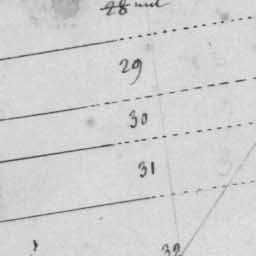 28 nul
29
30
31
32